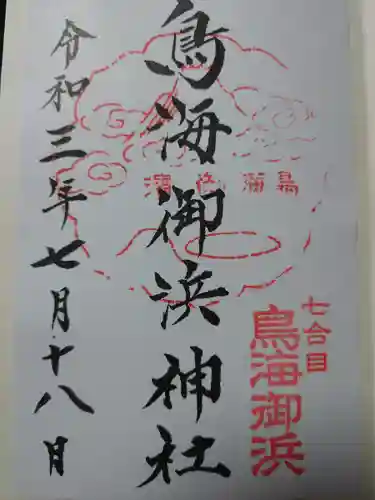 七合目
鳥海御浜
鳥海御浜神社
鳥海御濱
令和三年七月十八日